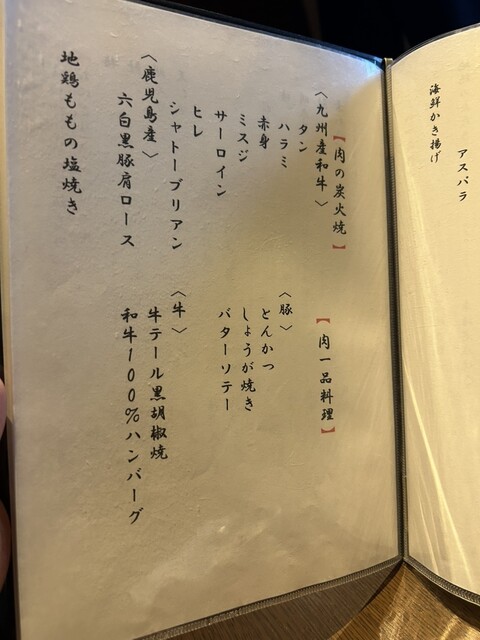 海鮮かき揚げ
アスパラ
【肉の炭火焼】
〈九州産和牛〉
タン
ハラミ
赤身
ミスジ
サーロイン
ヒレ
シャトーブリアン
〈鹿児島産〉
六白黒豚肩ロース
地鶏ももの塩焼き
【肉一品料理】
〈豚〉
とんかつ
しょうが焼き
バターソテー
〈牛〉
牛テール黒胡椒焼
和牛100%ハンバーグ